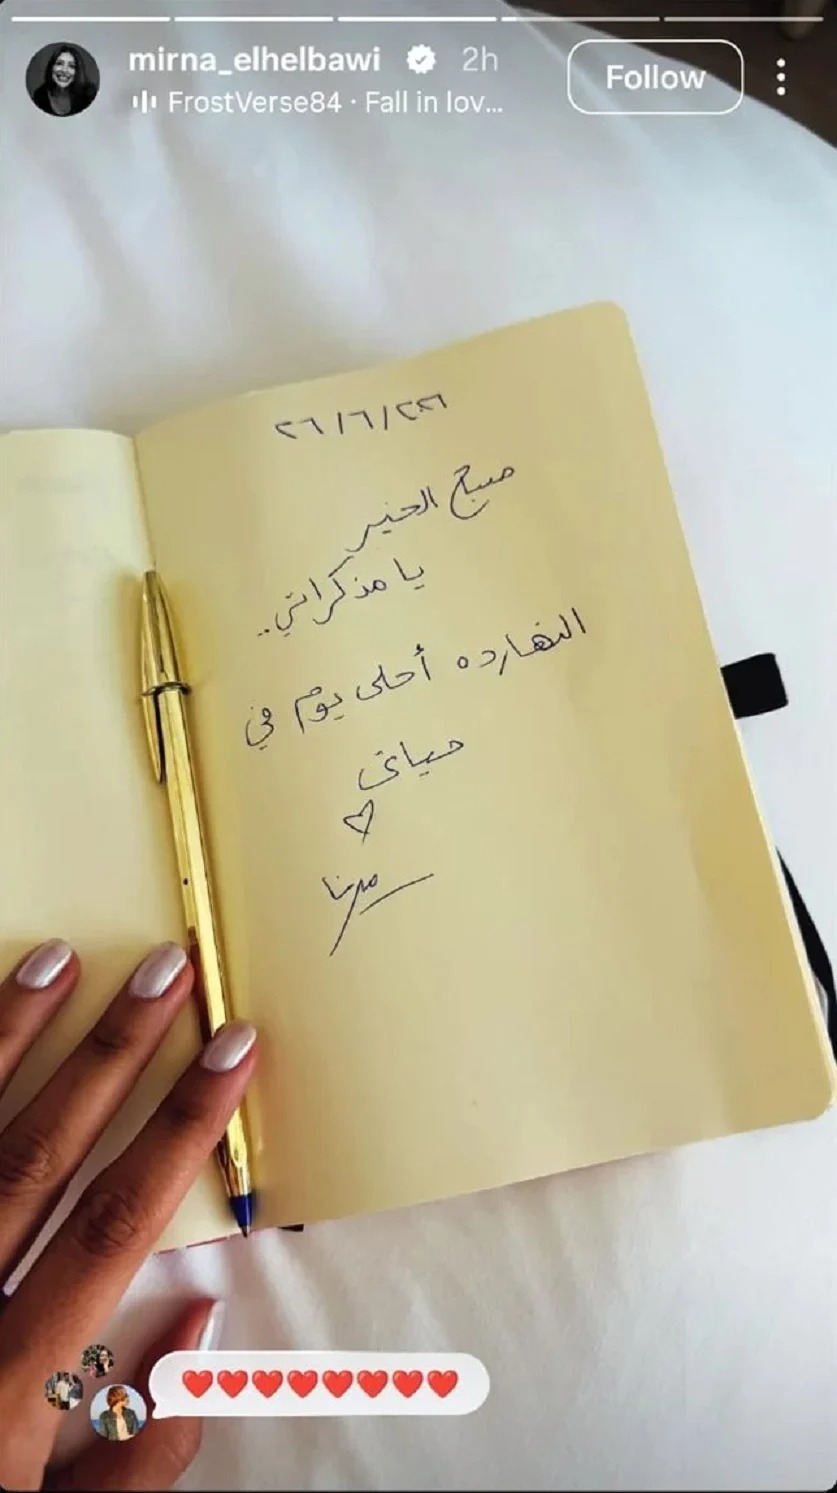 mirna_elhelbawi 2h
Follow
FrostVerse84 · Fall in lov...
٢٦/٦/٢٠٢٦
صباح الخير
يا مذكراتي..
النهارده أحلى يوم في
حياتى
ميرنا